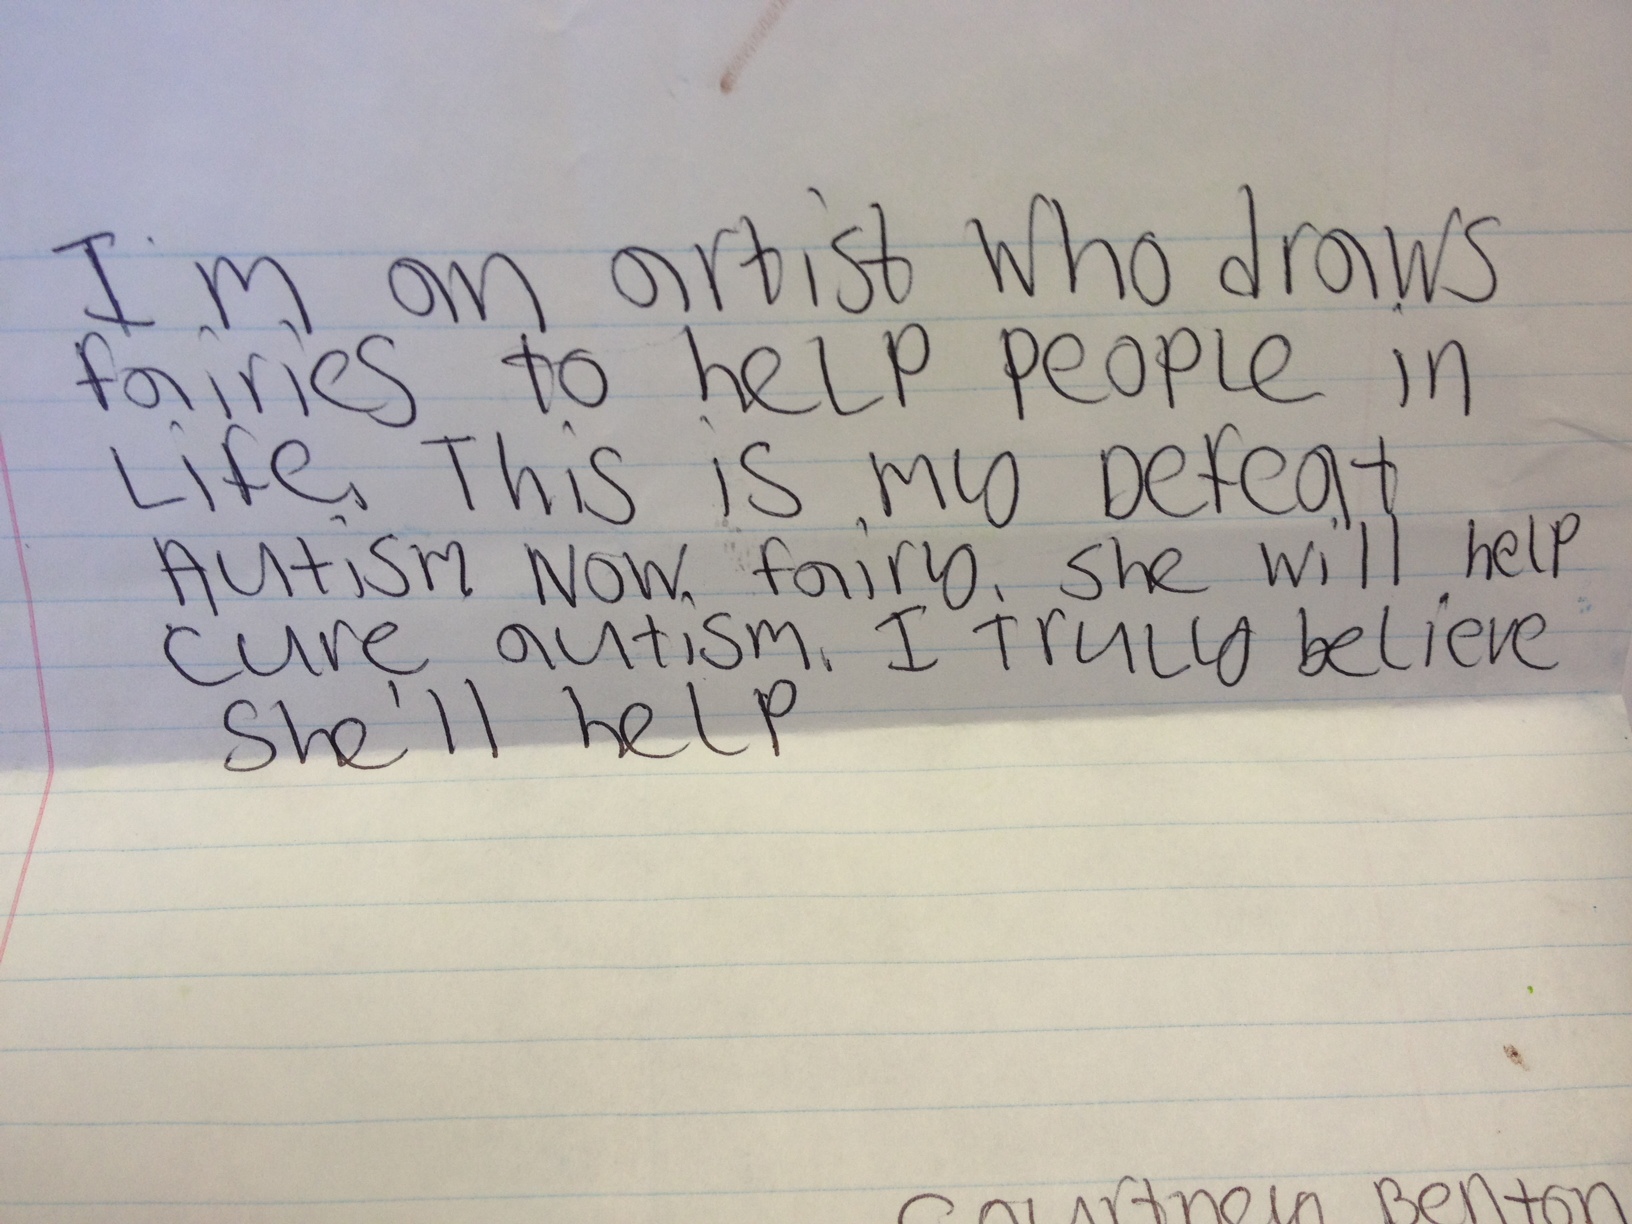 I'm an artist who draws
fairies to help people in
Life. This is my Defeat
Autism Now fairy. She will help
cure autism. I Truly believe
She'll help
Courtney Benton